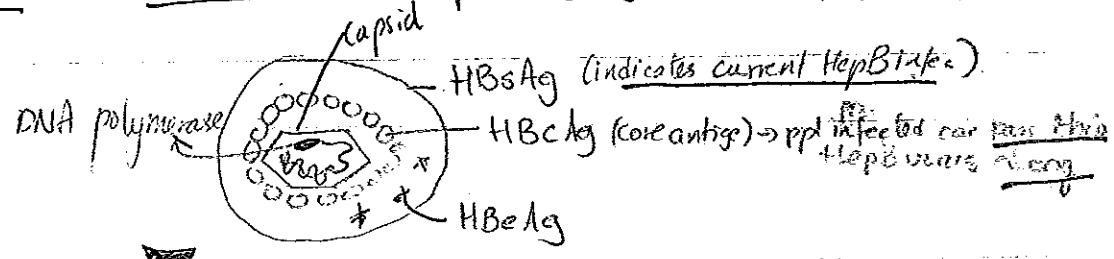 capsid
HBsAg (indicates current HepB infec).
DNA polymerase
HBcAg (core antige) → ppl infected can pass this
HepB virus along
HBeAg